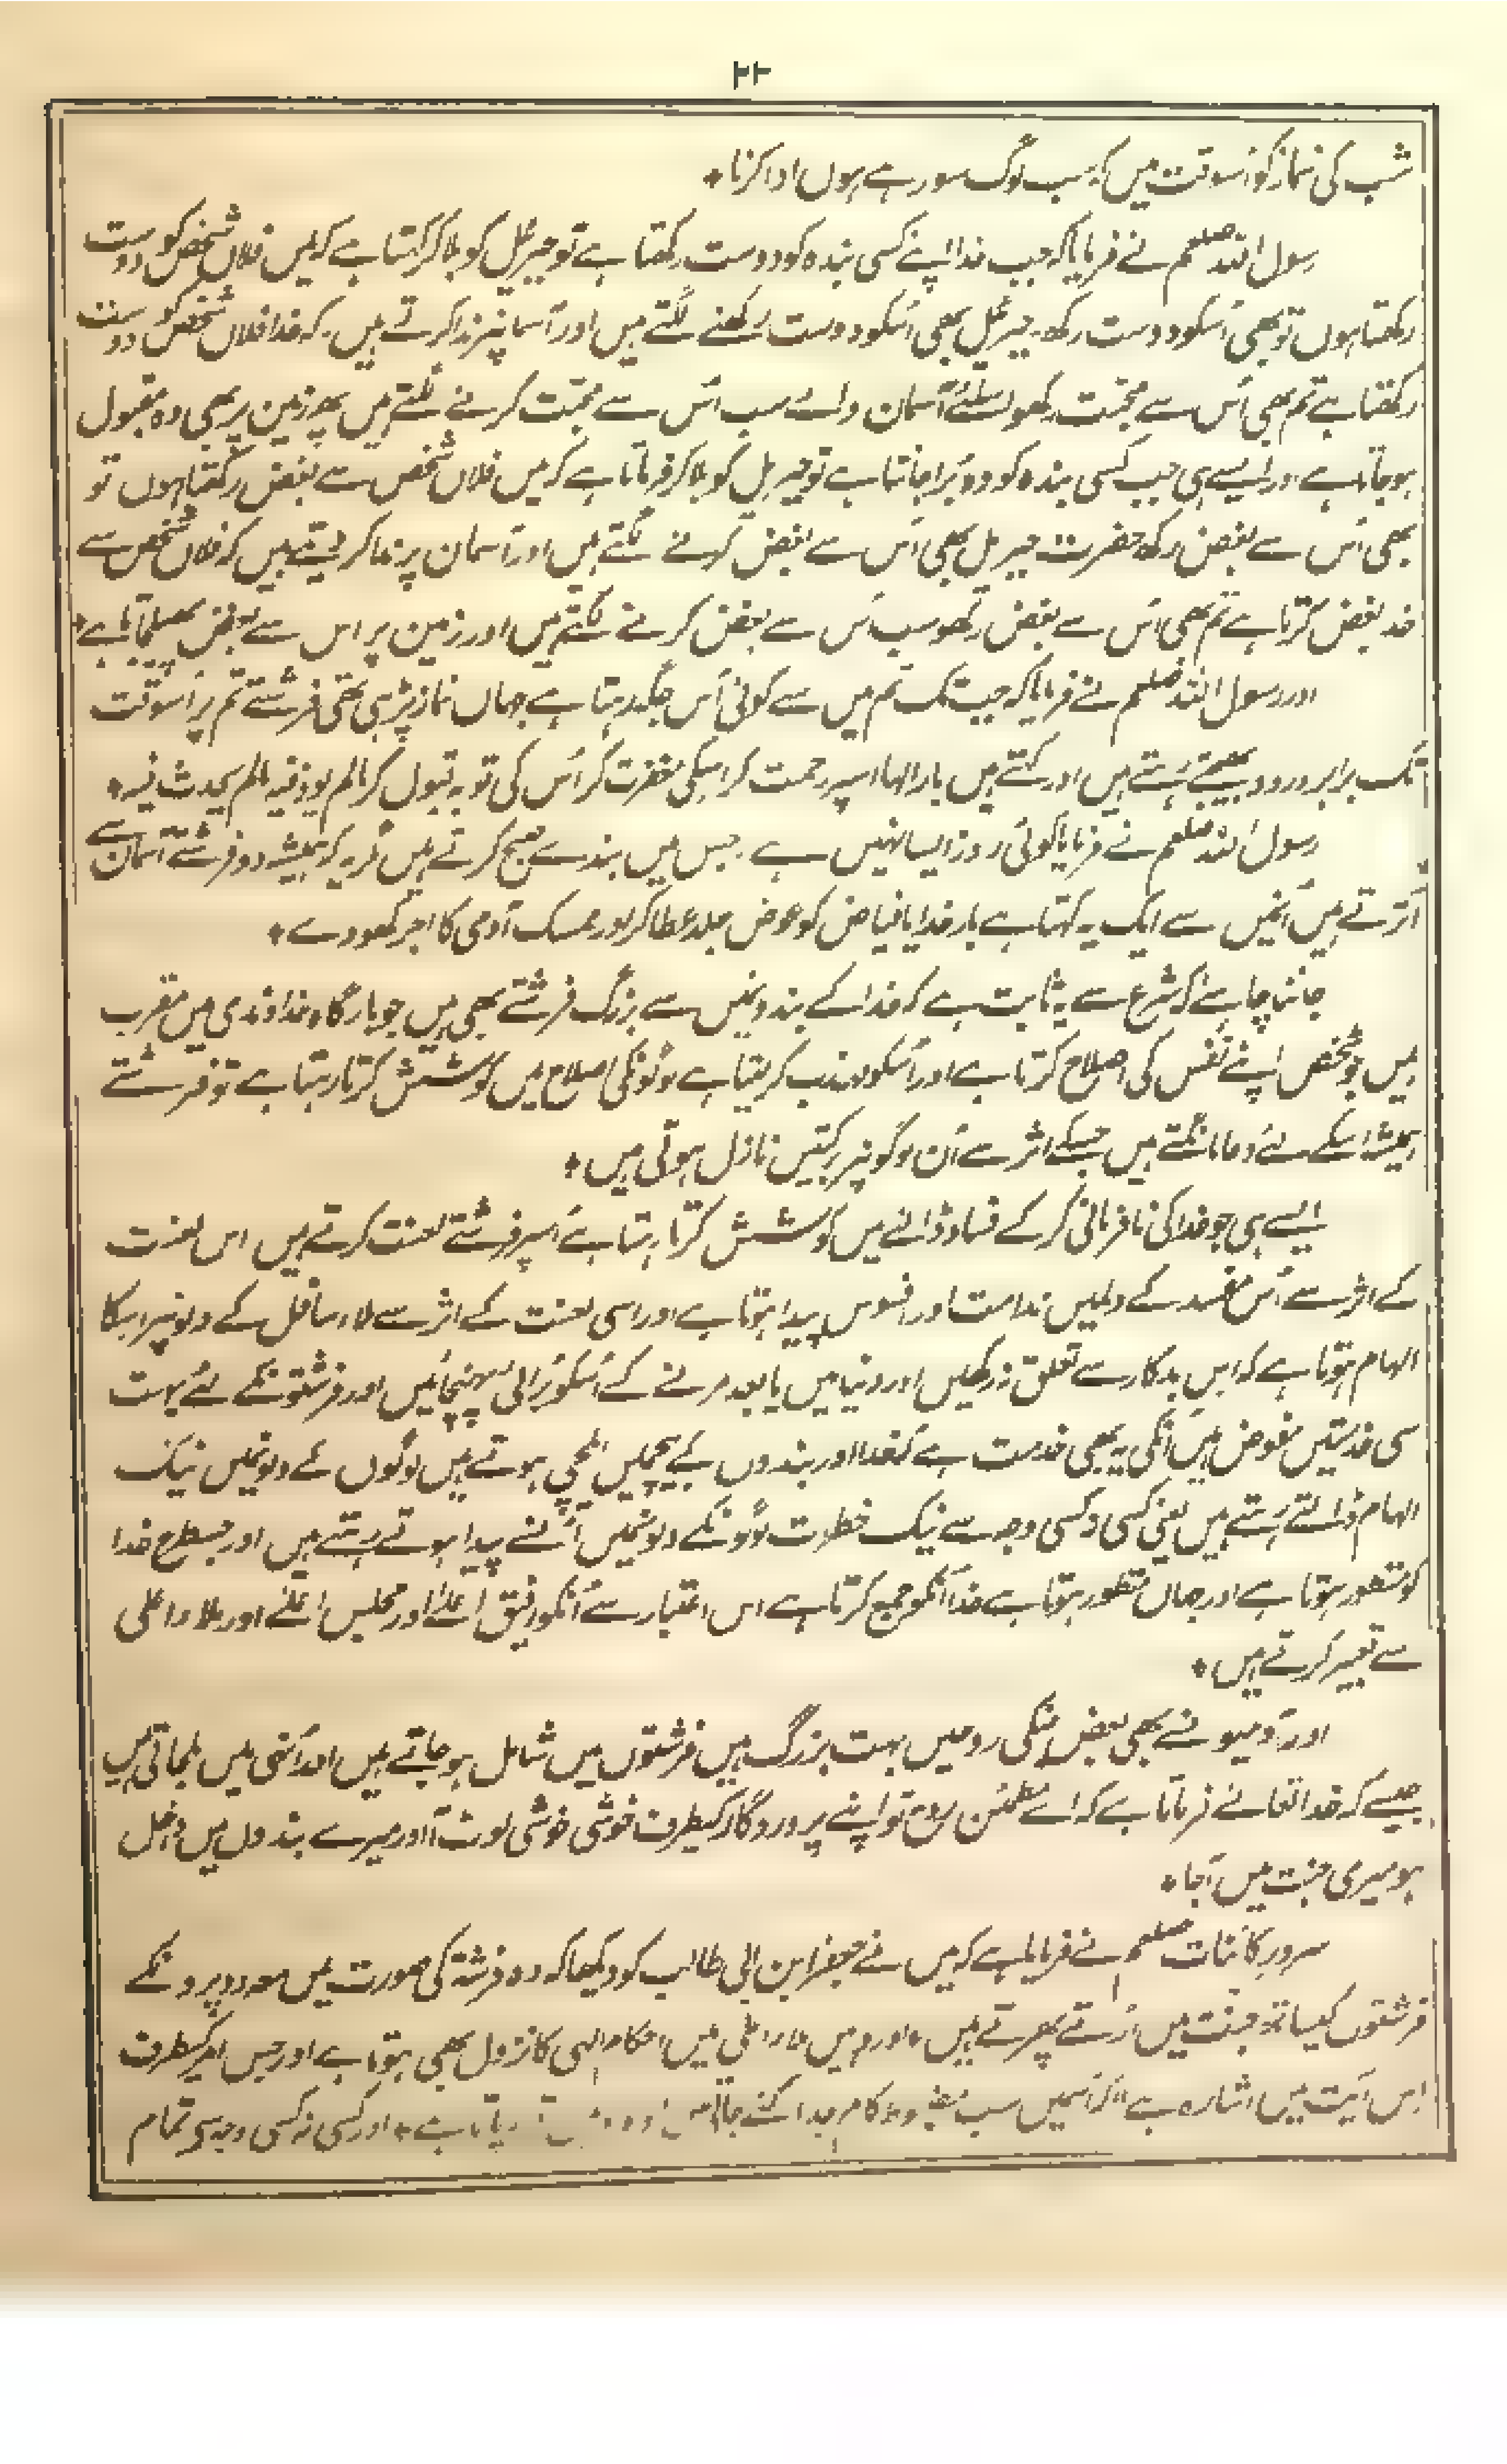 ۲۲
شب کی نماز کو اسوقت میں کہ سب لوگ سو رہے ہوں ادا کرنا *
رسول اللہ صلعم نے فرمایا کہ جب خدا اپنے کسی بندہ کو دوست رکھتا ہے تو جبرئیل کو بلا کر کہتا ہے کہ میں فلاں شخص کو دوست
رکھتا ہوں تو بھی اُسکو دوست رکھ۔ جبرئیل بھی اُسکو دوست رکھنے لگتے ہیں اور آسمانپر ندا کرتے ہیں۔ کہ خدا فلاں شخص کو دوست
رکھتا ہے تم بھی اُس سے محبّت رکھو اسلئے آسمان والے سب اُس سے محبّت کرنے لگتے ہیں پھر زمین پر بھی وہ مقبول
ہو جاتا ہے اور ایسے ہی جب کسی بندہ کو وہ بُرا جانتا ہے تو جبریل کو بلا کر فرماتا ہے کہ میں فلاں شخص سے بغض رکھتا ہوں تو
بھی اُس سے بغض رکھ حضرت جبریل بھی اُس سے بغض کرنے لگتے ہیں اور آسمان پر ندا کر دیتے ہیں کہ فلاں شخص سے
خدا بغض کرتا ہے تم بھی اُس سے بغض رکھو سب اُس سے بغض کرنے لگتے ہیں اور زمین پر اس سے بغض پھیلجاتا ہے*
اور رسول اللہ صلعم نے فرمایا کہ جب تک تم میں سے کوئی اُس جگہ رہتا ہے جہاں نماز پڑہی تھی فرشتے تم پر اُسوقت
تک برابر درود بھیجتے رہتے ہیں اور کہتے ہیں بار الہا اسپر رحمت کر اسکی مغفرت کر اُس کی توبہ قبول کر مالم یوذفیہ مالم یحدث فیہ*
رسول اللہ صلعم نے فرمایا کوئی روز ایسا نہیں ہے۔ جس میں بندے صبح کرتے ہیں مگر یہ کہ ہمیشہ دو فرشتے آسمان سے
اُترتے ہیں اُنمیں سے ایک یہ کہتا ہے بار خدایا فیاض کو عوض جلد عطا کر اور ممسک آدمی کا اجر کھو دے*
جاننا چاہئے کہ شرع سے یہ ثابت ہے کہ خدا کے بندونمیں سے بزرگ فرشتے بھی ہیں جو بارگاہ خداوندی میں مقرب
ہیں جو شخص اپنے نفس کی اصلاح کرتا ہے اور اُسکو مہذب کر لیتا ہے لوگونکی اصلاح میں کوشش کرتا رہتا ہے تو فرشتے
ہمیشہ اسکے لئے دعا مانگتے ہیں جسکے اثر سے اُن لوگونپر برکتیں نازل ہوتی ہیں*
ایسے ہی جو خدا کی نافرمانی کر کے فساد ڈالنے میں کوشش کرتا رہتا ہے اسپر فرشتے لعنت کرتے ہیں اس لعنت
کے اثر سے اُس مفسد کے دلمیں ندامت اور افسوس پیدا ہوتا ہے اور اسی لعنت کے اثر سے ملاء سافل کے دلونپر اسکا
الہام ہوتا ہے کہ اس بدکار سے تعلق نہ رکھیں اور دنیا میں یا بعد مرنے کے اُسکو بُرائی پہنچائیں اور فرشتونکے لئے بہت
سی خدمتیں مفوض ہیں اُنکی یہ بھی خدمت ہے کہ خدا اور بندوں کے بیچمیں ایلچی ہوتے ہیں لوگوں کے دلونمیں نیک
الہام ڈالتے رہتے ہیں یعنی کسی نہ کسی وجہ سے نیک خطرات لوگونکے دلونمیں اُنسے پیدا ہوتے رہتے ہیں اور جسطرح خدا
کو منظور ہوتا ہے اور جہاں منظور ہوتا ہے خدا اُنکو جمع کرتا ہے اس اعتبار سے اُنکو رفیق اعلیٰ اور مجلس اعلےٰ اور ملاء اعلی
سے تعبیر کرتے ہیں*
اور آدمیو نے بھی بعض جنکی روحیں بہت بزرگ ہیں فرشتوں میں شامل ہو جاتے ہیں اور اُنہی میں ملجاتی ہیں
جیسے کہ خدا تعالےٰ فرماتا ہے کہ اے مطمئن روح تو اپنے پروردگار کیطرف خوشی خوشی لوٹ آ اور میرے بندوں میں داخل
ہو میری جنت میں آجا*
سرور کائنات صلعم نے فرمایا ہے کہ میں نے جعفر ابن ابی طالب کو دیکھا کہ وہ فرشتہ کی صورت میں معہ دو پرونکے
فرشتوں کیساتھ جنت میں اُڑتے پھرتے ہیں، اور وہیں ملاء اعلیٰ میں احکام الہی کا نزول بھی ہوتا ہے اور جس امر کیطرف
اِس آیت میں اشارہ ہے "کہ اُسمیں سب مضبوط کام جدا کئے جاتے ہیں وہ پاتا ہے، اور کسی نہ کسی وجہ سے تمام